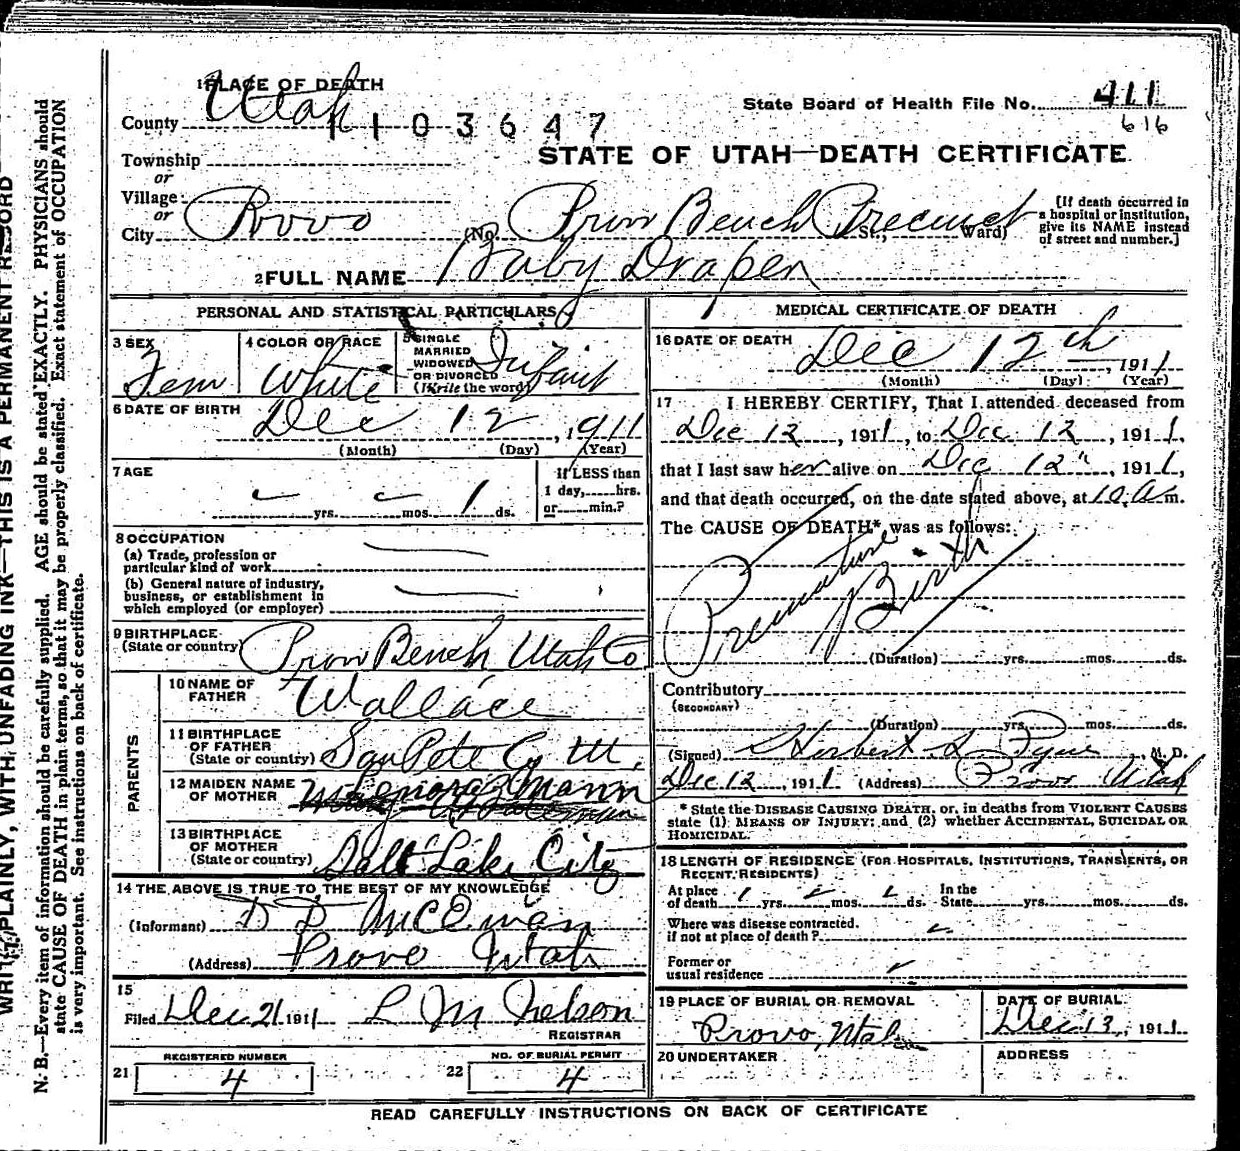 1 PLACE OF DEATH
County Utah
1103647
State Board of Health File No. 411
616
STATE OF UTAH—DEATH CERTIFICATE
Township
or
Village
or
City Provo (No. Provo Bench Precinct St., Ward)
[If death occurred in
a hospital or institution,
give its NAME instead
of street and number.]
2 FULL NAME Baby Draper
PERSONAL AND STATISTICAL PARTICULARS
3 SEX
Fem
4 COLOR OR RACE
White
5 SINGLE
MARRIED
WIDOWED
OR DIVORCED
(Write the word)
Infant
6 DATE OF BIRTH
Dec 12, 1911
(Month) (Day) (Year)
7 AGE
yrs. mos. 1 ds.
If LESS than
1 day, hrs.
or min.?
8 OCCUPATION
(a) Trade, profession or
particular kind of work
(b) General nature of industry,
business, or establishment in
which employed (or employer)
9 BIRTHPLACE
(State or country) Prov Bench Utah Co
PARENTS
10 NAME OF
FATHER Wallace
11 BIRTHPLACE
OF FATHER
(State or country) San Pete Co Ut.
12 MAIDEN NAME
OF MOTHER Mann
13 BIRTHPLACE
OF MOTHER
(State or country) Salt Lake City
14 THE ABOVE IS TRUE TO THE BEST OF MY KNOWLEDGE
(Informant) McEwan
(Address) Provo Utah
15
Filed Dec 21 1911 L M Nelson
REGISTRAR
REGISTERED NUMBER
21 4
NO. OF BURIAL PERMIT
22 4
MEDICAL CERTIFICATE OF DEATH
16 DATE OF DEATH
Dec 12th, 1911
(Month) (Day) (Year)
17 I HEREBY CERTIFY, That I attended deceased from
Dec 12, 1911, to Dec 12, 1911,
that I last saw her alive on Dec 12", 1911,
and that death occurred, on the date stated above, at 10 A m.
The CAUSE OF DEATH* was as follows:
Premature
Birth
(Duration) yrs. mos. ds.
Contributory
(SECONDARY)
(Duration) yrs. mos. ds.
(Signed) Herbert S. Pyne, M. D.
Dec 12, 1911 (Address) Provo Utah
* State the DISEASE CAUSING DEATH, or, in deaths from VIOLENT CAUSES
state (1) MEANS OF INJURY; and (2) whether ACCIDENTAL, SUICIDAL OR
HOMICIDAL.
18 LENGTH OF RESIDENCE (FOR HOSPITALS, INSTITUTIONS, TRANSIENTS, OR
RECENT RESIDENTS)
At place
of death yrs. mos. ds.
In the
State yrs. mos. ds.
Where was disease contracted,
if not at place of death?
Former or
usual residence
19 PLACE OF BURIAL OR REMOVAL
Provo, Utah
DATE OF BURIAL
Dec 13, 1911
20 UNDERTAKER
ADDRESS
READ CAREFULLY INSTRUCTIONS ON BACK OF CERTIFICATE
WRITE PLAINLY, WITH UNFADING INK—THIS IS A PERMANENT RECORD
N. B.—Every item of information should be carefully supplied. AGE should be stated EXACTLY. PHYSICIANS should
state CAUSE OF DEATH in plain terms, so that it may be properly classified. Exact statement of OCCUPATION
is very important. See instructions on back of certificate.